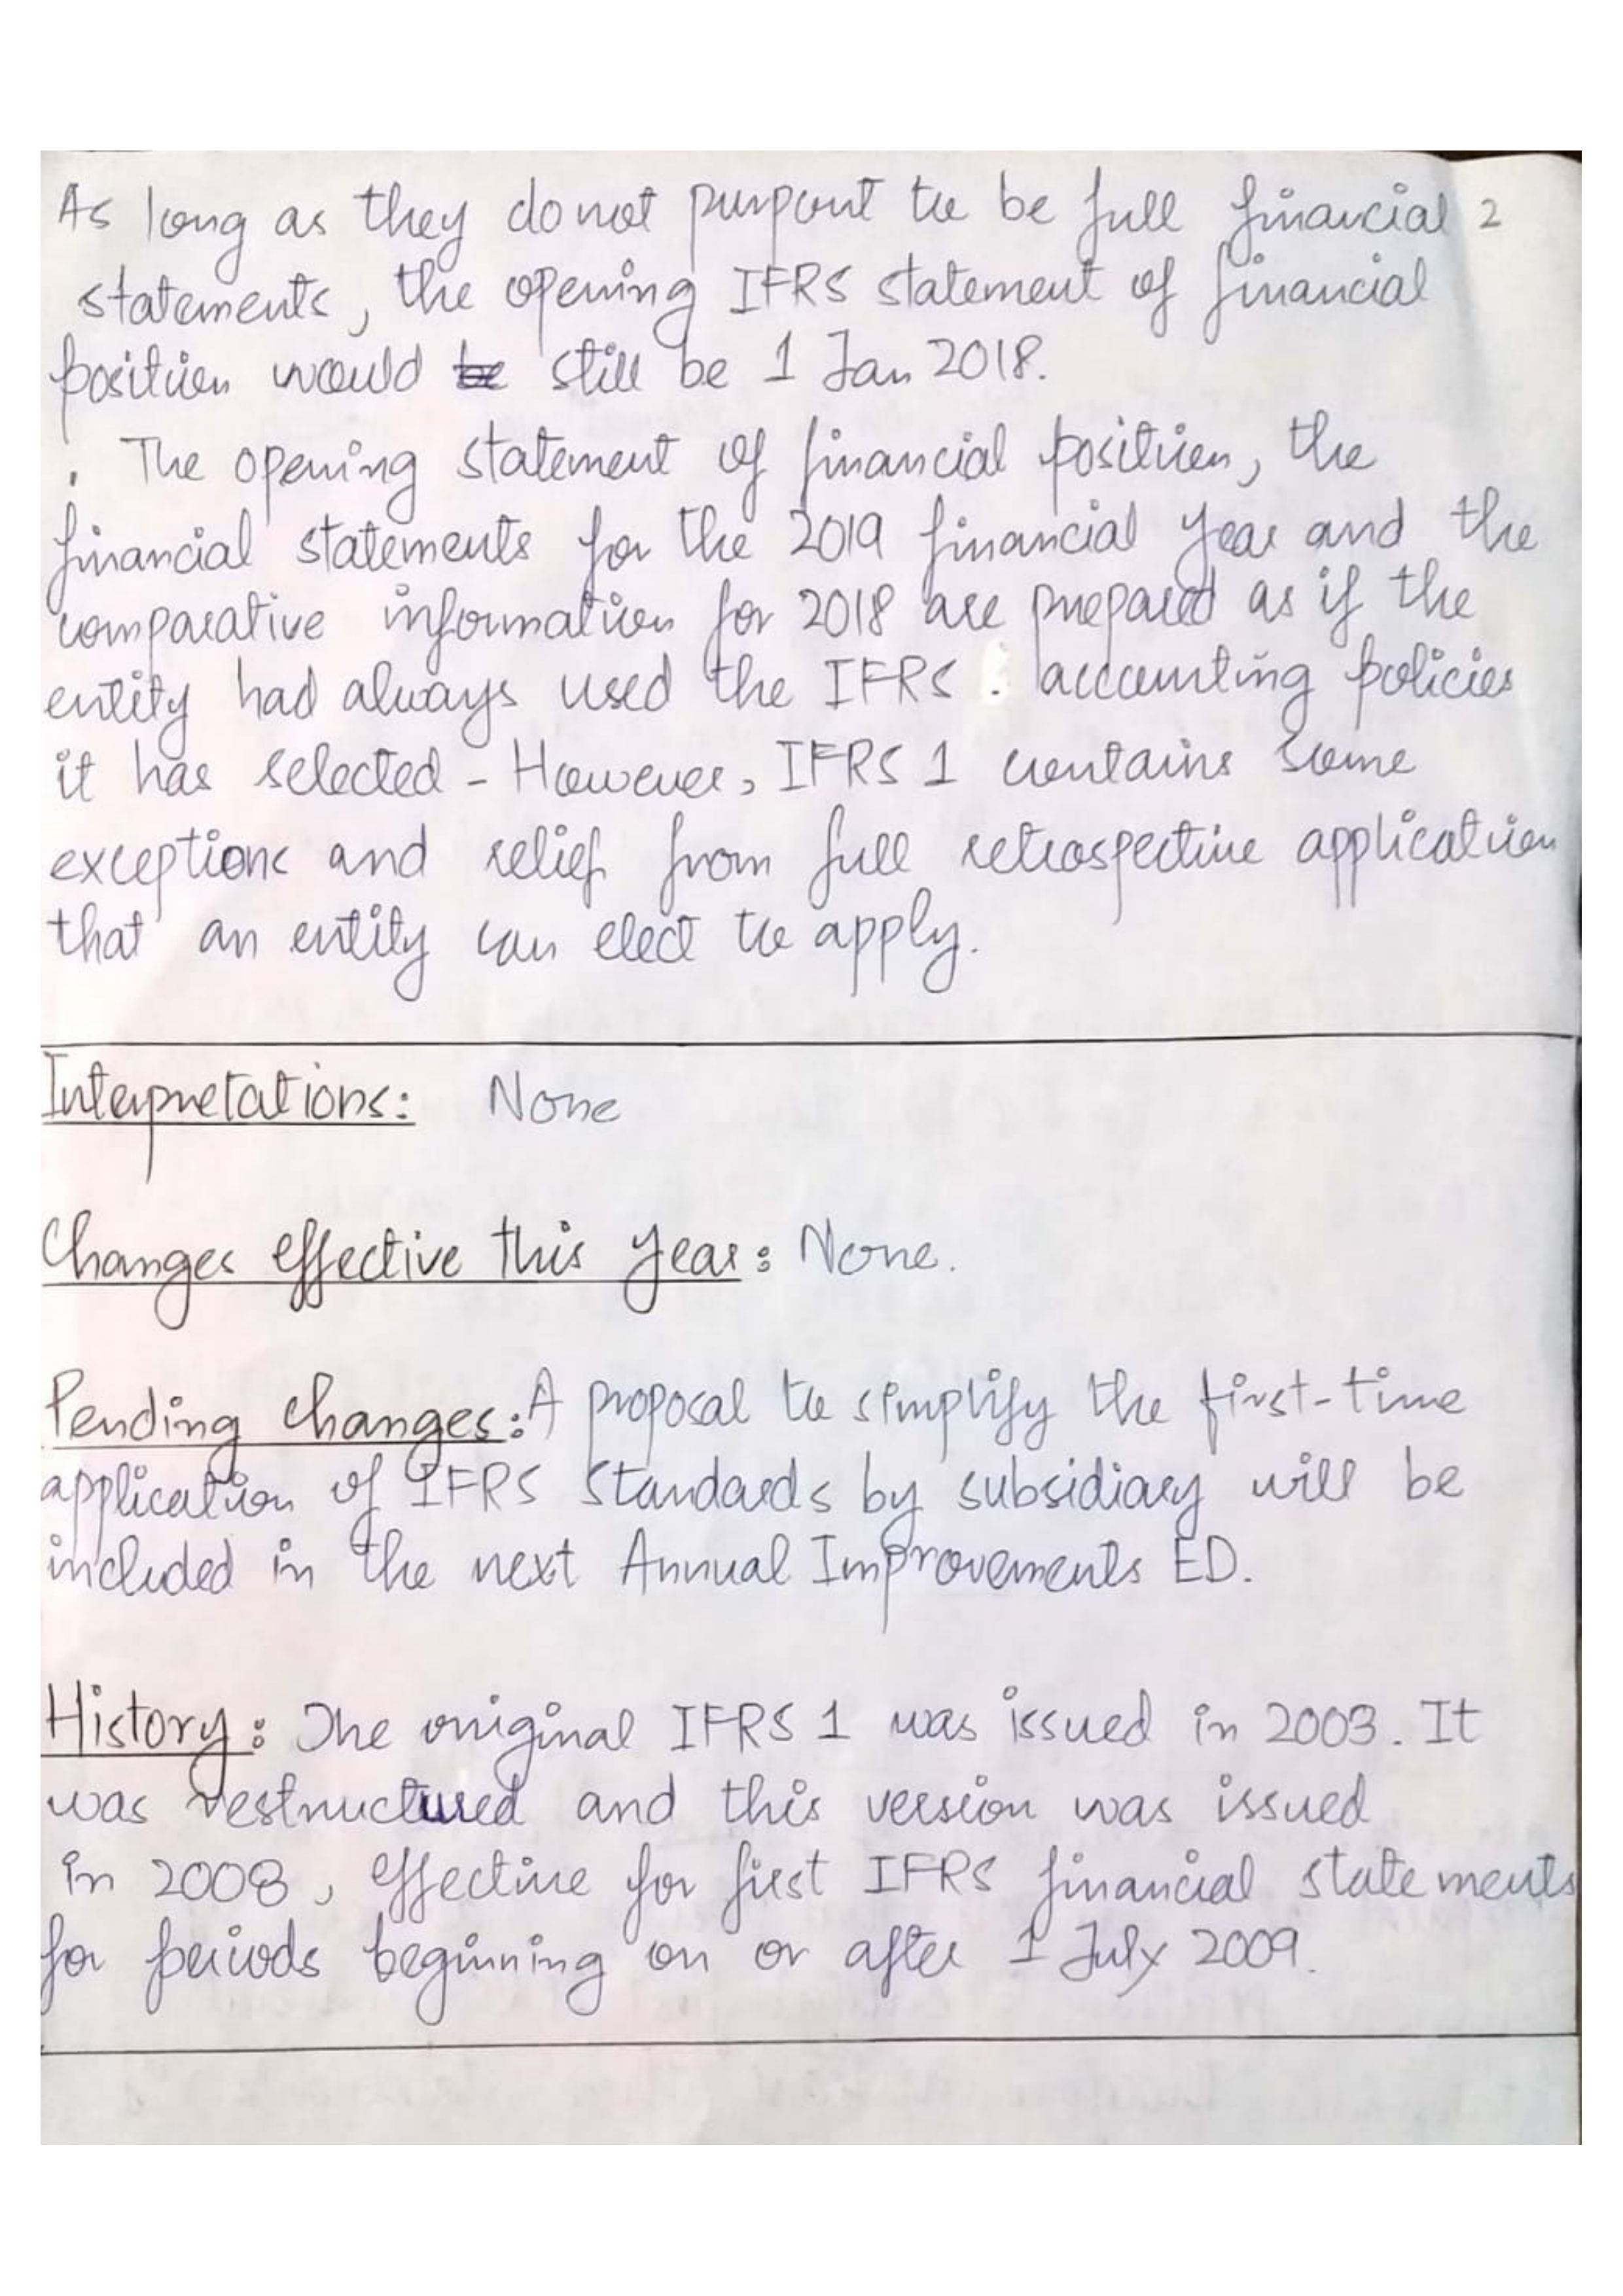 As long as they do not purport to be full financial 2
statements, the opening IFRS statement of financial
position would be still be 1 Jan 2018.
. The opening statement of financial position, the
financial statements for the 2019 financial year and the
comparative information for 2018 are prepared as if the
entity had always used the IFRS . accounting policies
it has selected - However, IFRS 1 contains some
exceptions and relief from full retrospective application
that an entity can elect to apply.
Interpretations: None
Changes effective this year: None.
Pending changes: A proposal to simplify the first-time
application of IFRS Standards by subsidiary will be
included in the next Annual Improvements ED.
History: The original IFRS 1 was issued in 2003. It
was restructured and this version was issued
in 2008, effective for first IFRS financial statements
for periods beginning on or after 1 July 2009.